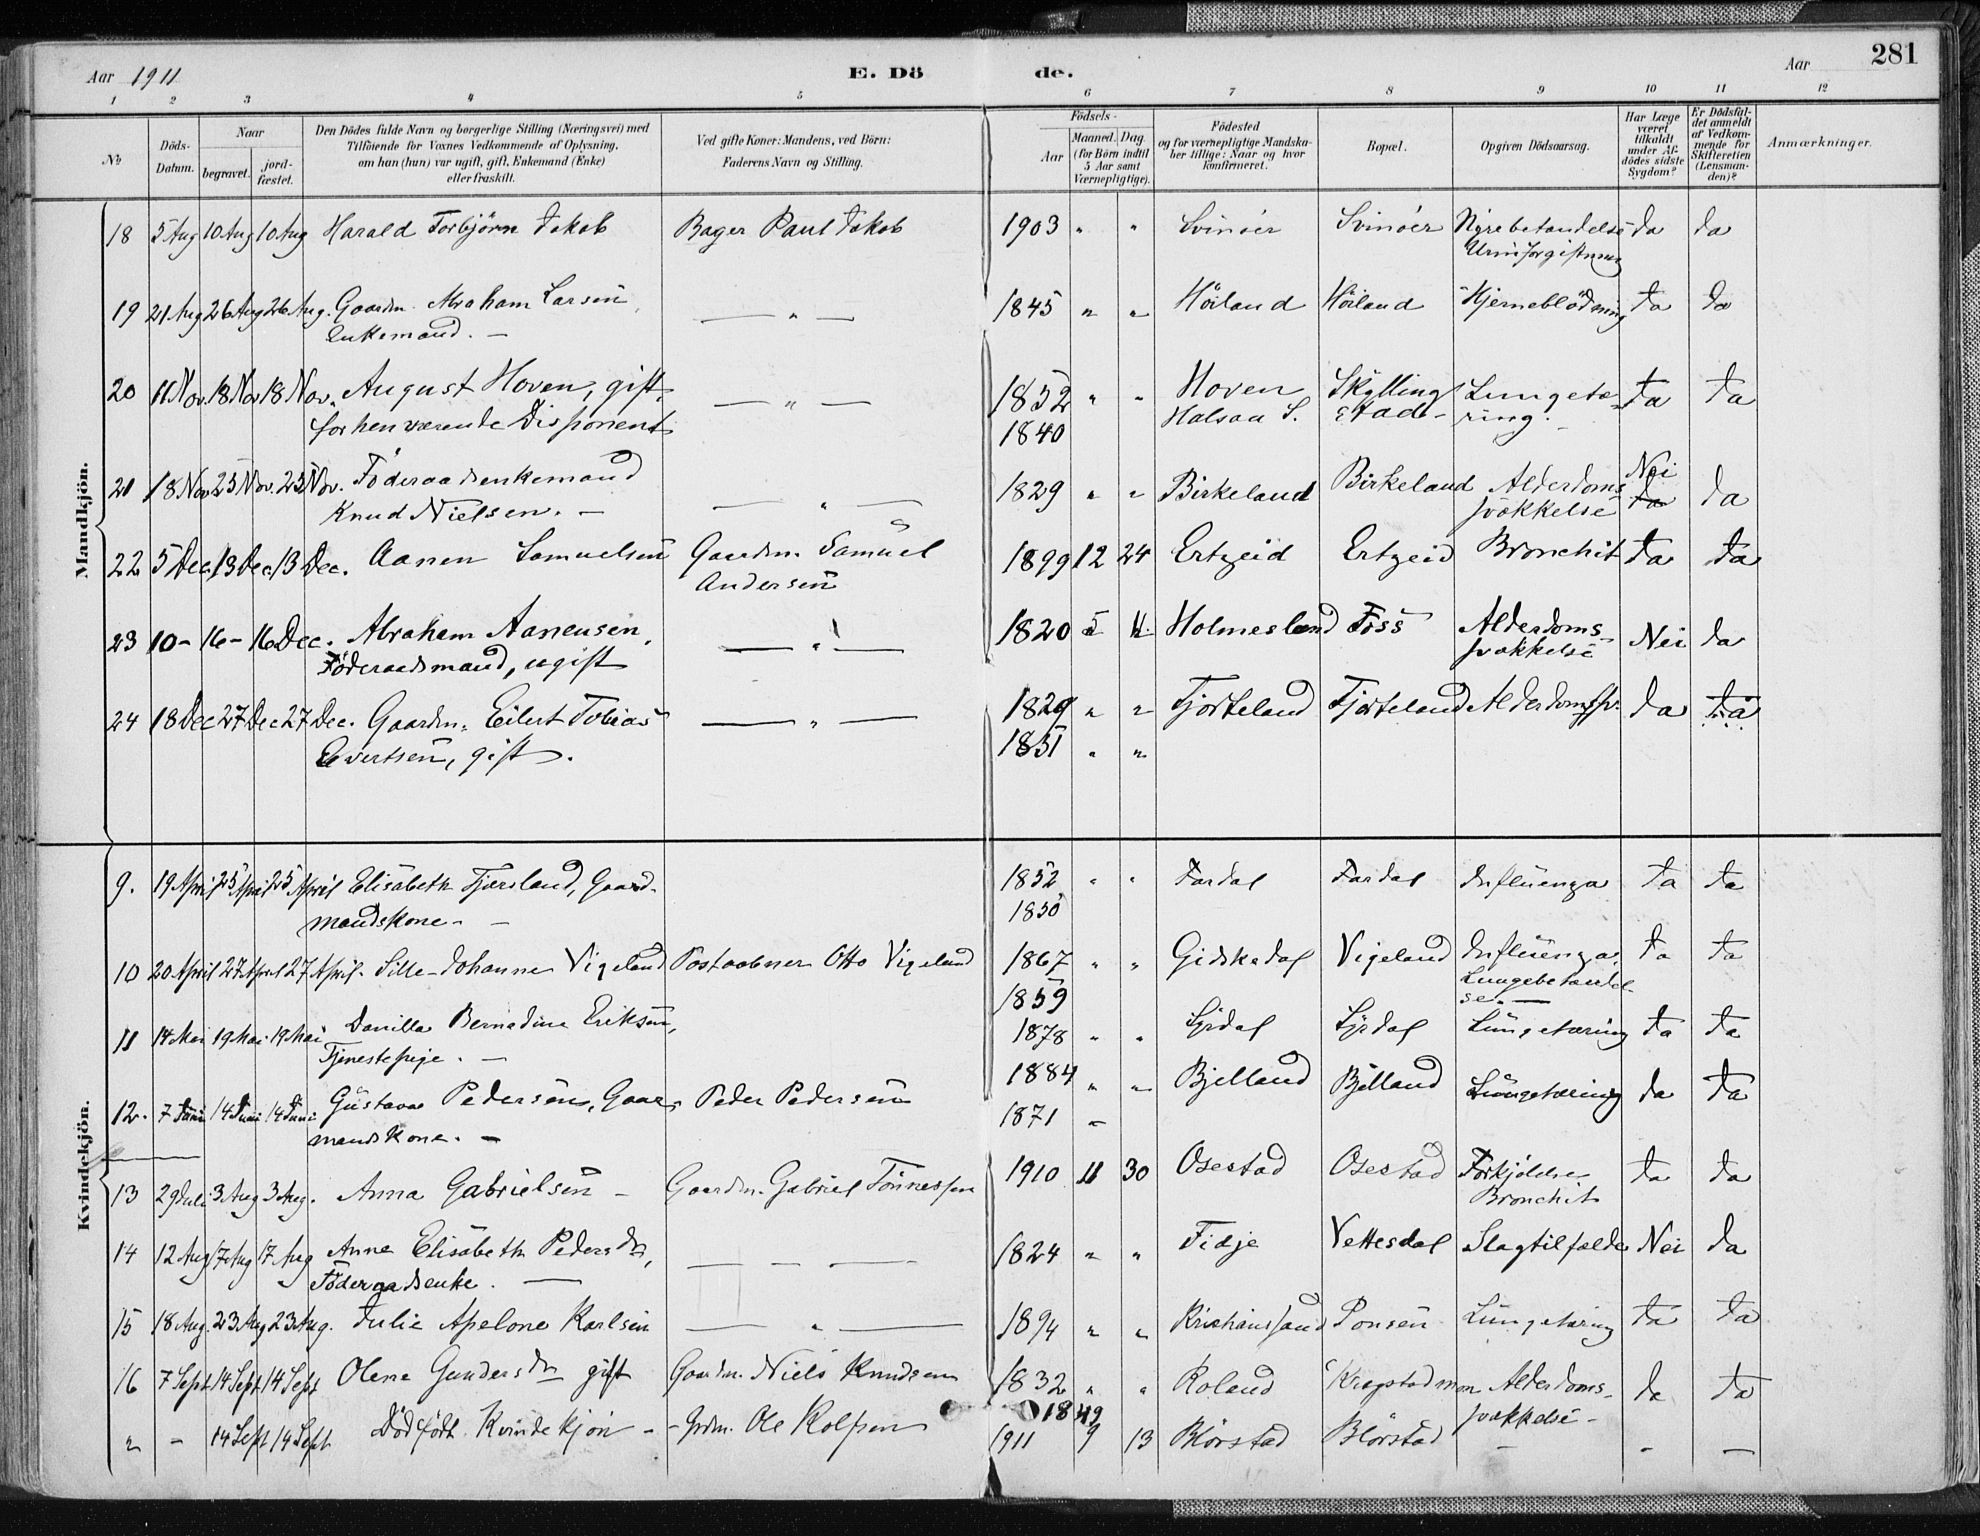 281
Aar 1911 E. Dö de. Aar
1 2 3 4 5 6 7 8 9 10 11 12
No
Döds-Datum.
Naar
begravet.
jord-fæstet.
Den Dödes fulde Navn og borgerlige Stilling (Næringsvei) med
Tilföiende for Voxnes Vedkommende af Oplysning,
om han (hun) var ugift, gift, Enkemand (Enke)
eller fraskilt.
Ved gifte Koner: Mandens, ved Börn:
Faderens Navn og Stilling.
Födsels-
Aar
Maaned. Dag.
(for Börn indtil
5 Aar samt
Værnepligtige).
Födested
og for værnepligtige Mandska-
ber tillige: Naar og hvor
konfirmeret.
Bopæl.
Opgiven Dödsaarsag.
Har Læge
været
tilkaldt
under Af-
dödes sidste
Sygdom?
Er Dödsfal-
det anmeldt
af Vedkom-
mende for
Skifteretten
(Lensman-
den)?
Anmærkninger.
Mandkjön.
18 5 Aug 10 Aug 10 Aug Harald Torbjörn Jakob Bager Paul Jakob 1903 " " Svinöer Svinöer Nyrebetændelse Ja Ja
Urinforgiftning
19 21 Aug 26 Aug 26 Aug. Gaardm. Abraham Larsen — " — 1845 " " Höiland Höiland Hjerneblödning Ja Ja
Enkemand. —
20 11 Nov. 18 Nov 18 Nov. August Hoven, gift, — " — 1852 " " Hoven Skylling Lungetæ- Ja Ja
forhenværende Disponent 1840 Halsaa S. stad - ring.
21 18 Nov 25 Nov. 25 Nov. Föderaadsenkemand — " — 1829 " " Birkeland Birkeland Alderdoms Nei Ja Ja
Knud Nielsen. — svækkelse
22 5 Dec. 13 Dec. 13 Dec. Aanen Samuelsen Gaardm. Samuel 1899 12 24 Ertzeid Ertzeid Bronchit Ja Ja
Andersen
23 10 - 16 - 16 Dec. Abraham Aanensen, — " — 1820 5 11. Holmesland Foss Alderdoms- Nei Ja
Föderaadsmand, ugift svækkelse
24 18 Dec 27 Dec 27 Dec. Gaardm. Eilert Tobias — " — 1829 " " Tjorteland Tjorteland Alderdomssv. Ja Ja
Evertsen, gift. 1851 " "
Kvindekjön.
9. 19 April 25 April 25 April Elisabeth Fjærsland, Gaard- 1852 " " Fardal Fardal Influenza Ja Ja
mandskone - — 1850
10 20 April 27 April 27 April. Sille Johanne Vigeland Postaabner Otto Vigeland 1867 " " Gidskedal Vigeland Influenza, Ja Ja
1859 Lungebetændel-
se. —
11 14 Mai 19 Mai 19 Mai Danilla Bernadine Eriksen, 1878 " " Lyrdal Lyrdal Lungetæring Ja Ja
Tjenestepige. —
12. 7 Juni 14 Juni 14 Juni Gustava Pedersen, Gaar- Peder Pedersen 1884 " " Bjelland Bjelland Lungetæring Ja Ja
mandskone. — 1871 "
13 29 Juli 3 Aug 3 Aug. Anna Gabrielsen - Gaardm. Gabriel Tönnessen 1910 11 30 Osestad Osestad Forkjölelse Ja Ja
Bronchit
14 12 Aug 17 Aug 17 Aug Anne Elisabeth Pedersd, — — — 1824 " " Fidje Vettesdal Slagtilfælde Nei Ja
Föderaadsenke. —
15 18 Aug. 23 Aug 23 Aug. Julie Apelone Karlsen — " — 1894 " " Kristianssand Ponsen Lungetæring Ja Ja
16 7 Sept 14 Sept 14 Sept Olene Gundersd gift Gaardm. Niels Knudsen 1832 " " Roland Alderdoms- Ja Ja
1849 svækkelse -
" - 14 Sept 14 Sept Dödfödt Kvindekjön - - Grdm. Ole Rolfsen 1911 9 13 Blörstad Blörstad - - —